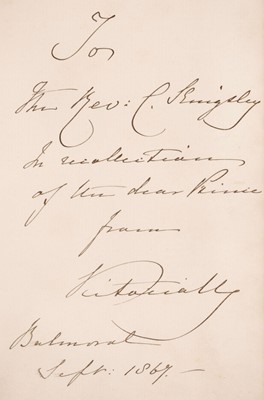 To
The Rev: C. Kingsley
In recollection
of the dear Prince
from
Victoria R
Balmoral
Sept: 1867.—